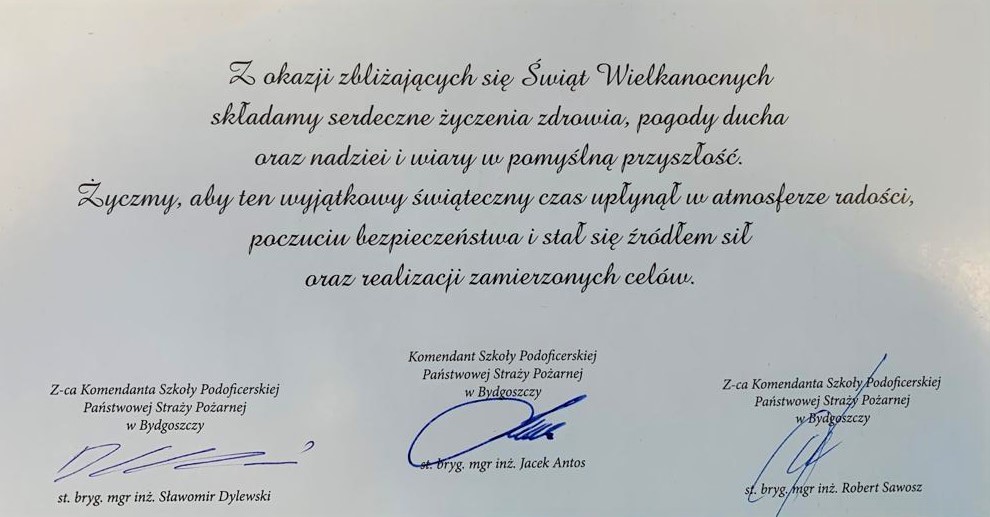 Z okazji zbliżających się Świąt Wielkanocnych
składamy serdeczne życzenia zdrowia, pogody ducha
oraz nadziei i wiary w pomyślną przyszłość.
Życzmy, aby ten wyjątkowy świąteczny czas upłynął w atmosferze radości,
poczuciu bezpieczeństwa i stał się źródłem sił
oraz realizacji zamierzonych celów.
Komendant Szkoły Podoficerskiej
Państwowej Straży Pożarnej
w Bydgoszczy
st. bryg. mgr inż. Jacek Antos
Z-ca Komendanta Szkoły Podoficerskiej
Państwowej Straży Pożarnej
w Bydgoszczy
st. bryg. mgr inż. Sławomir Dylewski
Z-ca Komendanta Szkoły Podoficerskiej
Państwowej Straży Pożarnej
w Bydgoszczy
st. bryg. mgr inż. Robert Sawosz